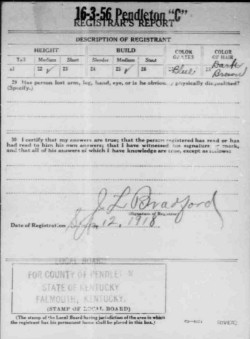 16-3-56 Pendleton "C"
REGISTRAR'S REPORT
DESCRIPTION OF REGISTRANT
HEIGHT BUILD COLOR OF EYES COLOR OF HAIR
Tall Medium Short Slender Medium Stout
21 22 ✓ 23 24 25 ✓ 26 27 Blue 28 Dark Brown
29 Has person lost arm, leg, hand, eye, or is he obviously physically disqualified?
(Specify.)
30 I certify that my answers are true; that the person registered has read or has
had read to him his own answers; that I have witnessed his signature or mark,
and that all of his answers of which I have knowledge are true, except as follows:
J L Bradford
(Signature of Registrar)
Date of Registration Sept 12, 1918
LOCAL BOARD
FOR COUNTY OF PENDLETON
STATE OF KENTUCKY
FALMOUTH, KENTUCKY.
(STAMP OF LOCAL BOARD)
(The stamp of the Local Board having jurisdiction of the area in which
the registrant has his permanent home shall be placed in this box.)